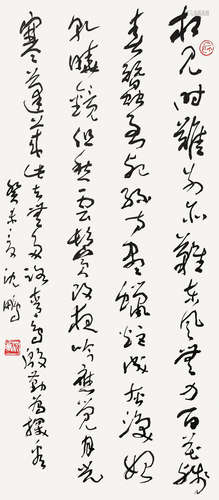 相见时难别亦难东风无力百花残
春蚕到死丝方尽蜡炬成灰泪始
乾晓镜但愁云鬓改夜吟应觉月光
寒蓬莱此去无多路青鸟殷勤为探看
癸未夏沈鹏